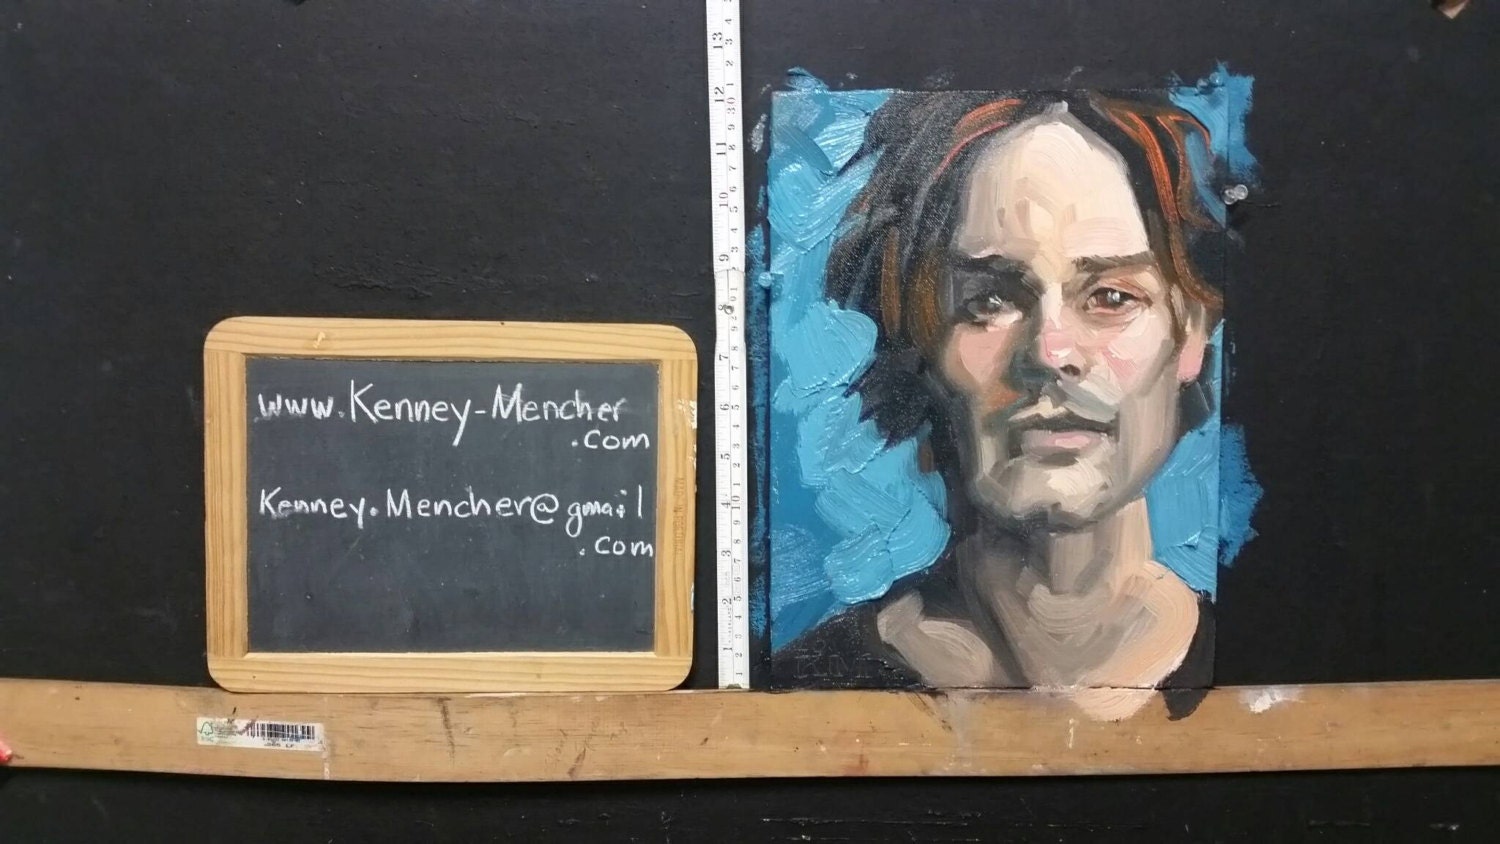 www.Kenney-Mencher
.com
Kenney.Mencher@gmail
.com
13
12
11
10
9
8
7
6
5
4
3
2
1
KM